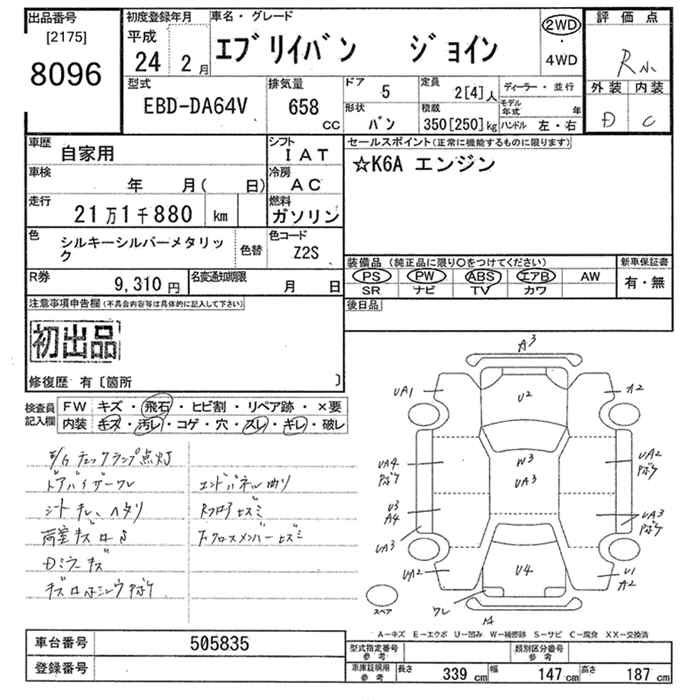 出品番号
[2175]
8096
初度登録年月
平成
24 2月
車名・グレード
エブリイバン ジョイン
2WD
・
4WD
評価点
R
外装 内装
D C
型式
EBD-DA64V
排気量
658
CC
ドア
5
定員
2[4]人
形状
バン
積載
350[250]kg
ディーラー・並行
モデル年式 年
ハンドル 左・右
車歴
自家用
シフト
IAT
車検
年 月( 日)
冷房
AC
走行
21万1千880 km
燃料
ガソリン
色
シルキーシルバーメタリック
色替
色コード
Z2S
R券
9,310円
名変通知期限
月 日
セールスポイント(正常に機能するものに限ります)
☆K6A エンジン
装備品(純正品に限り○をつけてください)
PS PW ABS エアB AW
SR ナビ TV カワ
新車保証書
有・無
後日品
注意事項申告欄(不具合内容等は具体的に記入して下さい)
初出品
修復歴 有〔箇所 〕
検査員記入欄
FW キズ・飛石・ヒビ割・リペア跡・×要
内装 キズ・汚レ・コゲ・穴・スレ・キレ・破レ
E/Gチェックランプ点灯
ドアバイザーワレ
シートキレ、ヘタリ
荷室キズ
Dミラーキズ
エンドパネル曲り
Rフロアヒズミ
Fクロスメンバーヒズミ
A3
UA1
U2
A2
UA4
W3
UA3
UA2
U3
A4
UA3
UA3
UA2
U4
U1
A2
ワレ
スペア
A-キズ E-エクボ U-凹み W-補修跡 S-サビ C-腐食 XX-交換済
車台番号
505835
登録番号
型式指定番号
参考
類別区分番号
参考
車庫証明用
参考
長さ 339 cm 幅 147 cm 高さ 187 cm